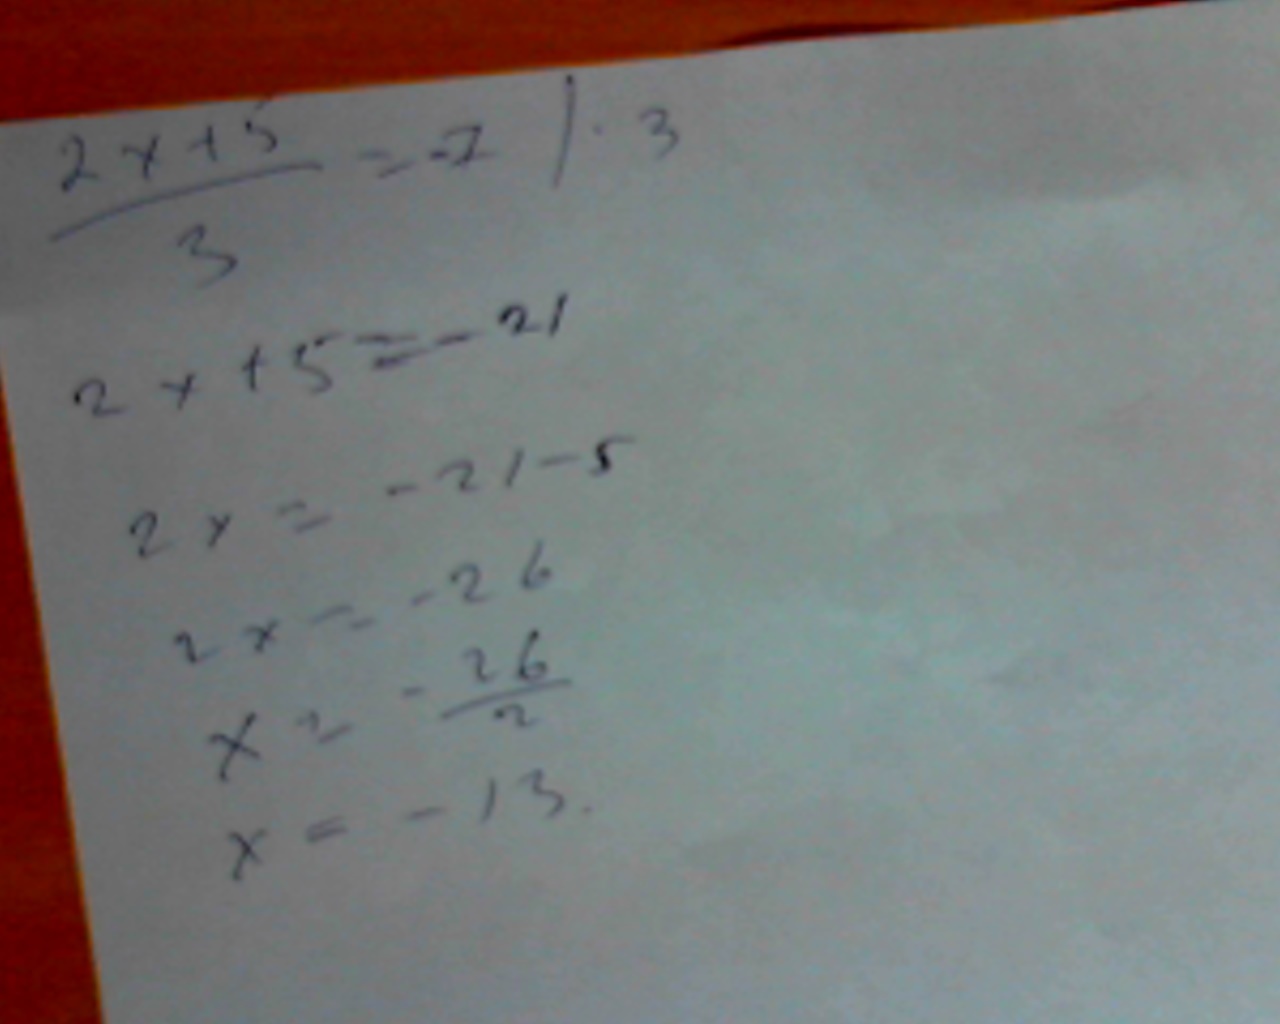 2x+5/3 = -7 | · 3
2x+5=-21
2x = -21-5
2x = -26
x = -26/2
x = -13.